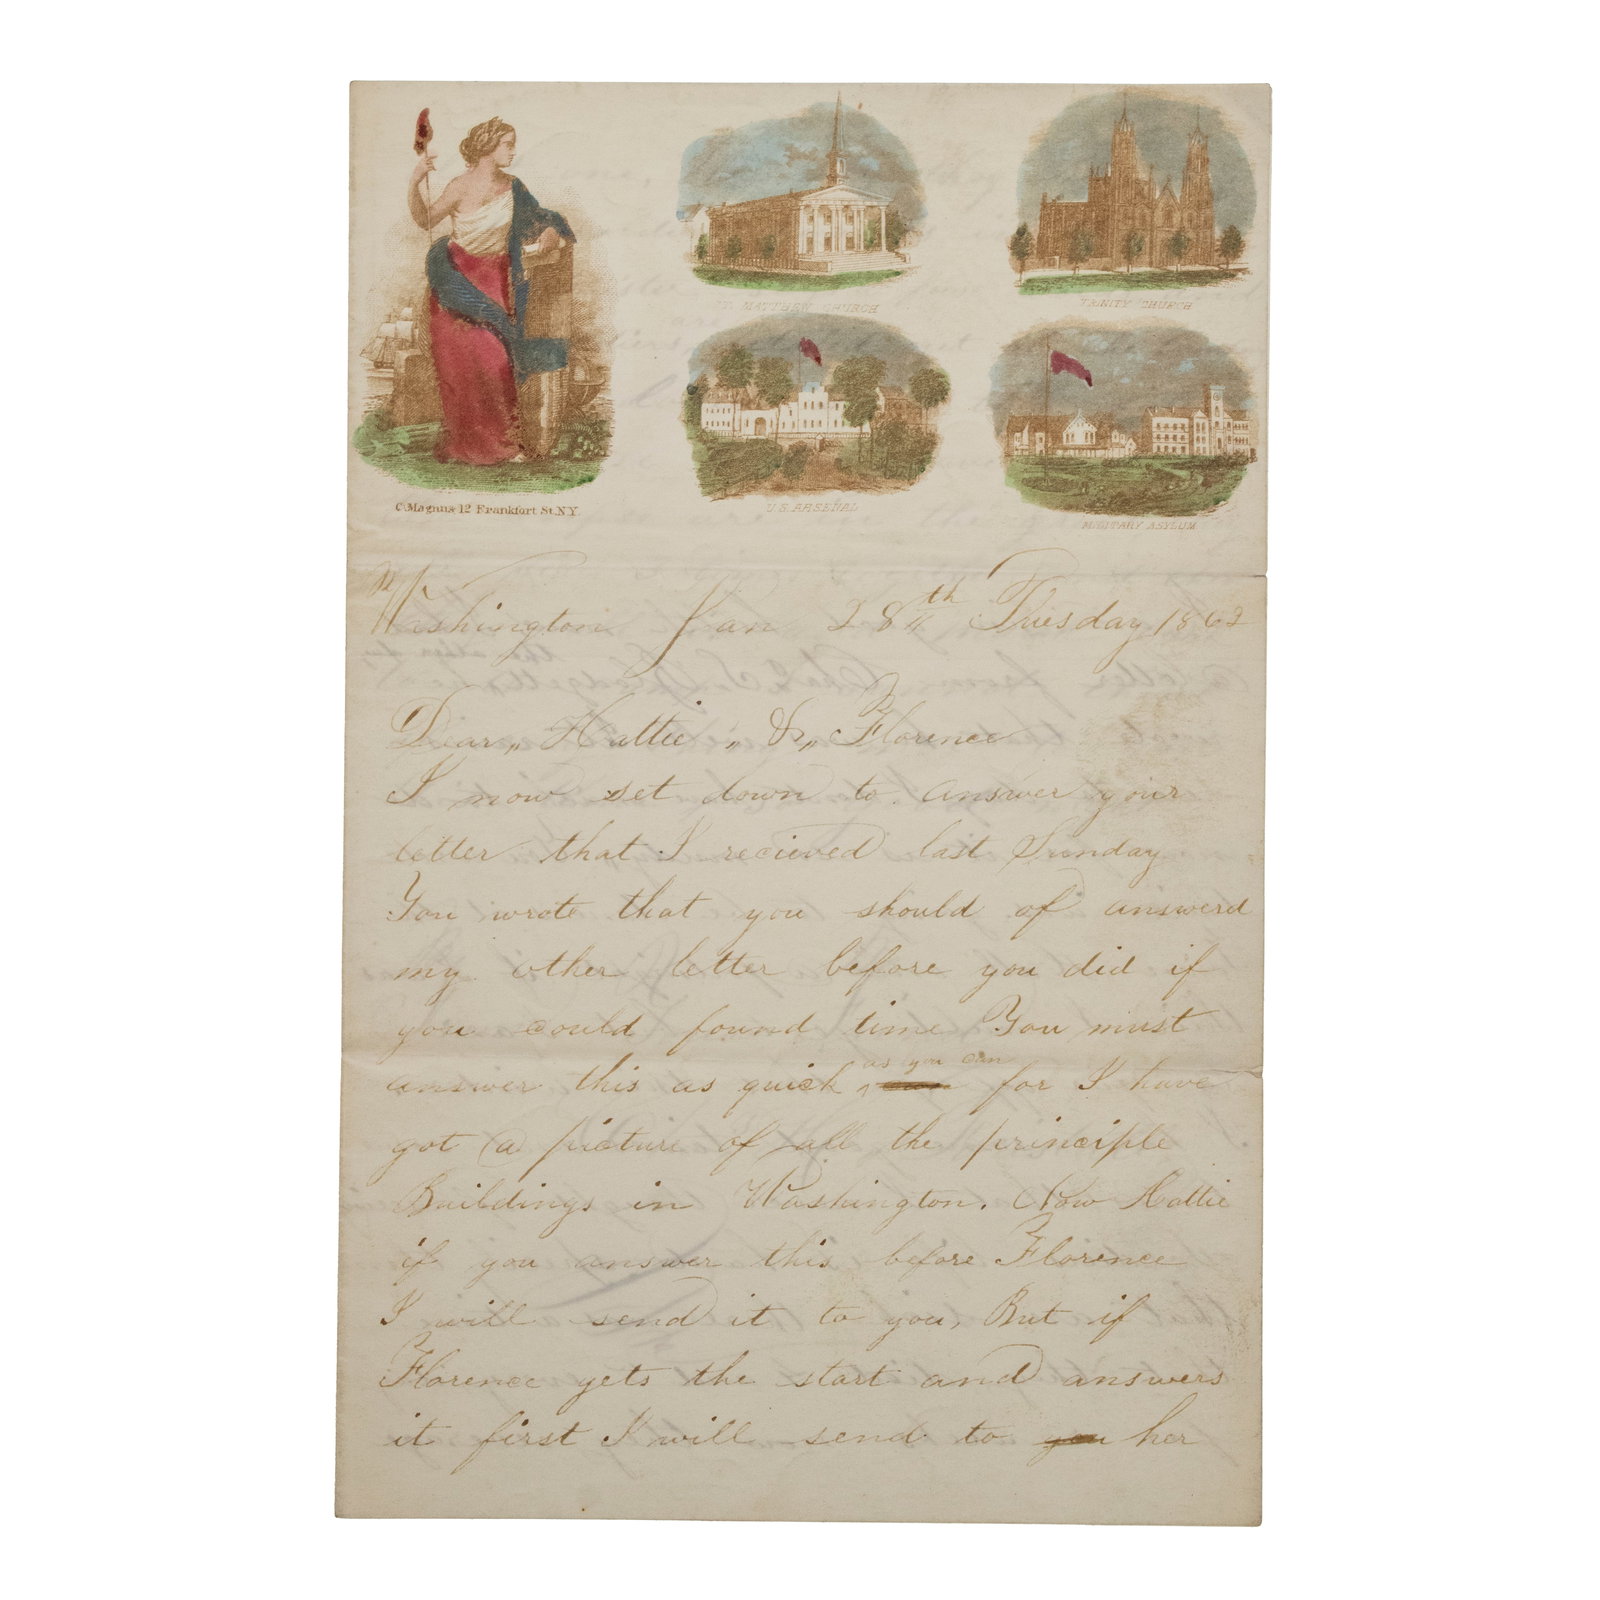 ST. MATTHEW CHURCH
TRINITY CHURCH
U.S. ARSENAL
MILITARY ASYLUM
C. Magnus 12 Frankfort St. N.Y.
Washington Jan 28th Tuesday 1862
Dear,, Hattie ,, & ,, Florence
I now set down to answer your
letter that I recieved last Sunday
You wrote that you should of answerd
my other letter before you did if
you could found time You must
answer this as quick as you can for I have
got a picture of all the principle
Buildings in Washington. Now Hattie
if you answer this before Florence
I will send it to you, But if
Florence gets the start and answers
it first I will send to you her